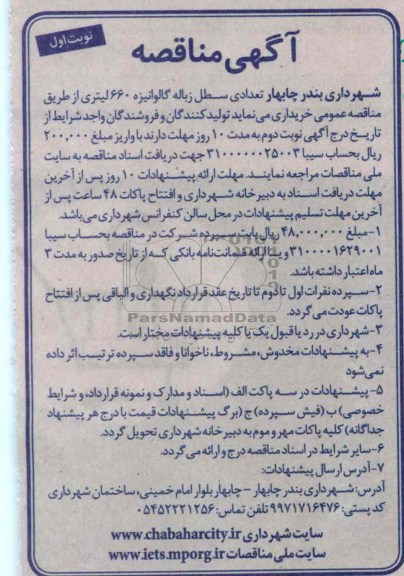 نوبت اول
آگهی مناقصه
شهرداری بندر چابهار تعدادی سطل زباله گالوانیزه ۶۶۰ لیتری از طریق
مناقصه عمومی خریداری می‌نماید تولیدکنندگان و فروشندگان واجد شرایط از
تاریخ درج آگهی نوبت دوم به مدت ۱۰ روز مهلت دارند با واریز مبلغ ۲۰۰,۰۰۰
ریال بحساب سیبا ۳۱۰۰۰۰۰۰۲۵۰۰۳ جهت دریافت اسناد مناقصه به سایت
ملی مناقصات مراجعه نمایند. مهلت ارائه پیشنهادات ۱۰ روز پس از آخرین
مهلت دریافت اسناد به دبیرخانه شهرداری و افتتاح پاکات ۴۸ ساعت پس از
آخرین مهلت تسلیم پیشنهادات در محل سالن کنفرانس شهرداری می‌باشد.
۱-مبلغ ۴۸,۰۰۰,۰۰۰ ریال بابت سپرده شرکت در مناقصه بحساب سیبا
۳۱۰۰۰۰۱۶۲۹۰۰۱ و یا ارائه ضمانت‌نامه بانکی که از تاریخ صدور به مدت ۳
ماه اعتبار داشته باشد.
۲-سپرده نفرات اول تا دوم تا تاریخ عقد قرارداد نگهداری و الباقی پس از افتتاح
پاکات عودت می‌گردد.
ParsNamadData
۳-شهرداری در رد یا قبول یک یا کلیه پیشنهادات مختار است.
۴-به پیشنهادات مخدوش، مشروط، ناخوانا و فاقد سپرده ترتیب اثر داده
نمی‌شود
۵-پیشنهادات در سه پاکت الف (اسناد و مدارک و نمونه قرارداد، و شرایط
خصوصی) ب (فیش سپرده) ج (برگ پیشنهادات قیمت با درج هر پیشنهاد
جداگانه) کلیه پاکات مهر و موم به دبیرخانه شهرداری تحویل گردد.
۶-سایر شرایط در اسناد مناقصه درج و ارائه می‌گردد.
۷-آدرس ارسال پیشنهادات:
آدرس: شهرداری بندر چابهار - چابهار بلوار امام خمینی، ساختمان شهرداری
کد پستی: ۹۹۷۱۷۱۶۴۷۶ تلفن تماس: ۰۵۴۵۲۲۲۱۲۵۶
سایت شهرداری www.chabaharcity.ir
سایت ملی مناقصات www.iets.mporg.ir